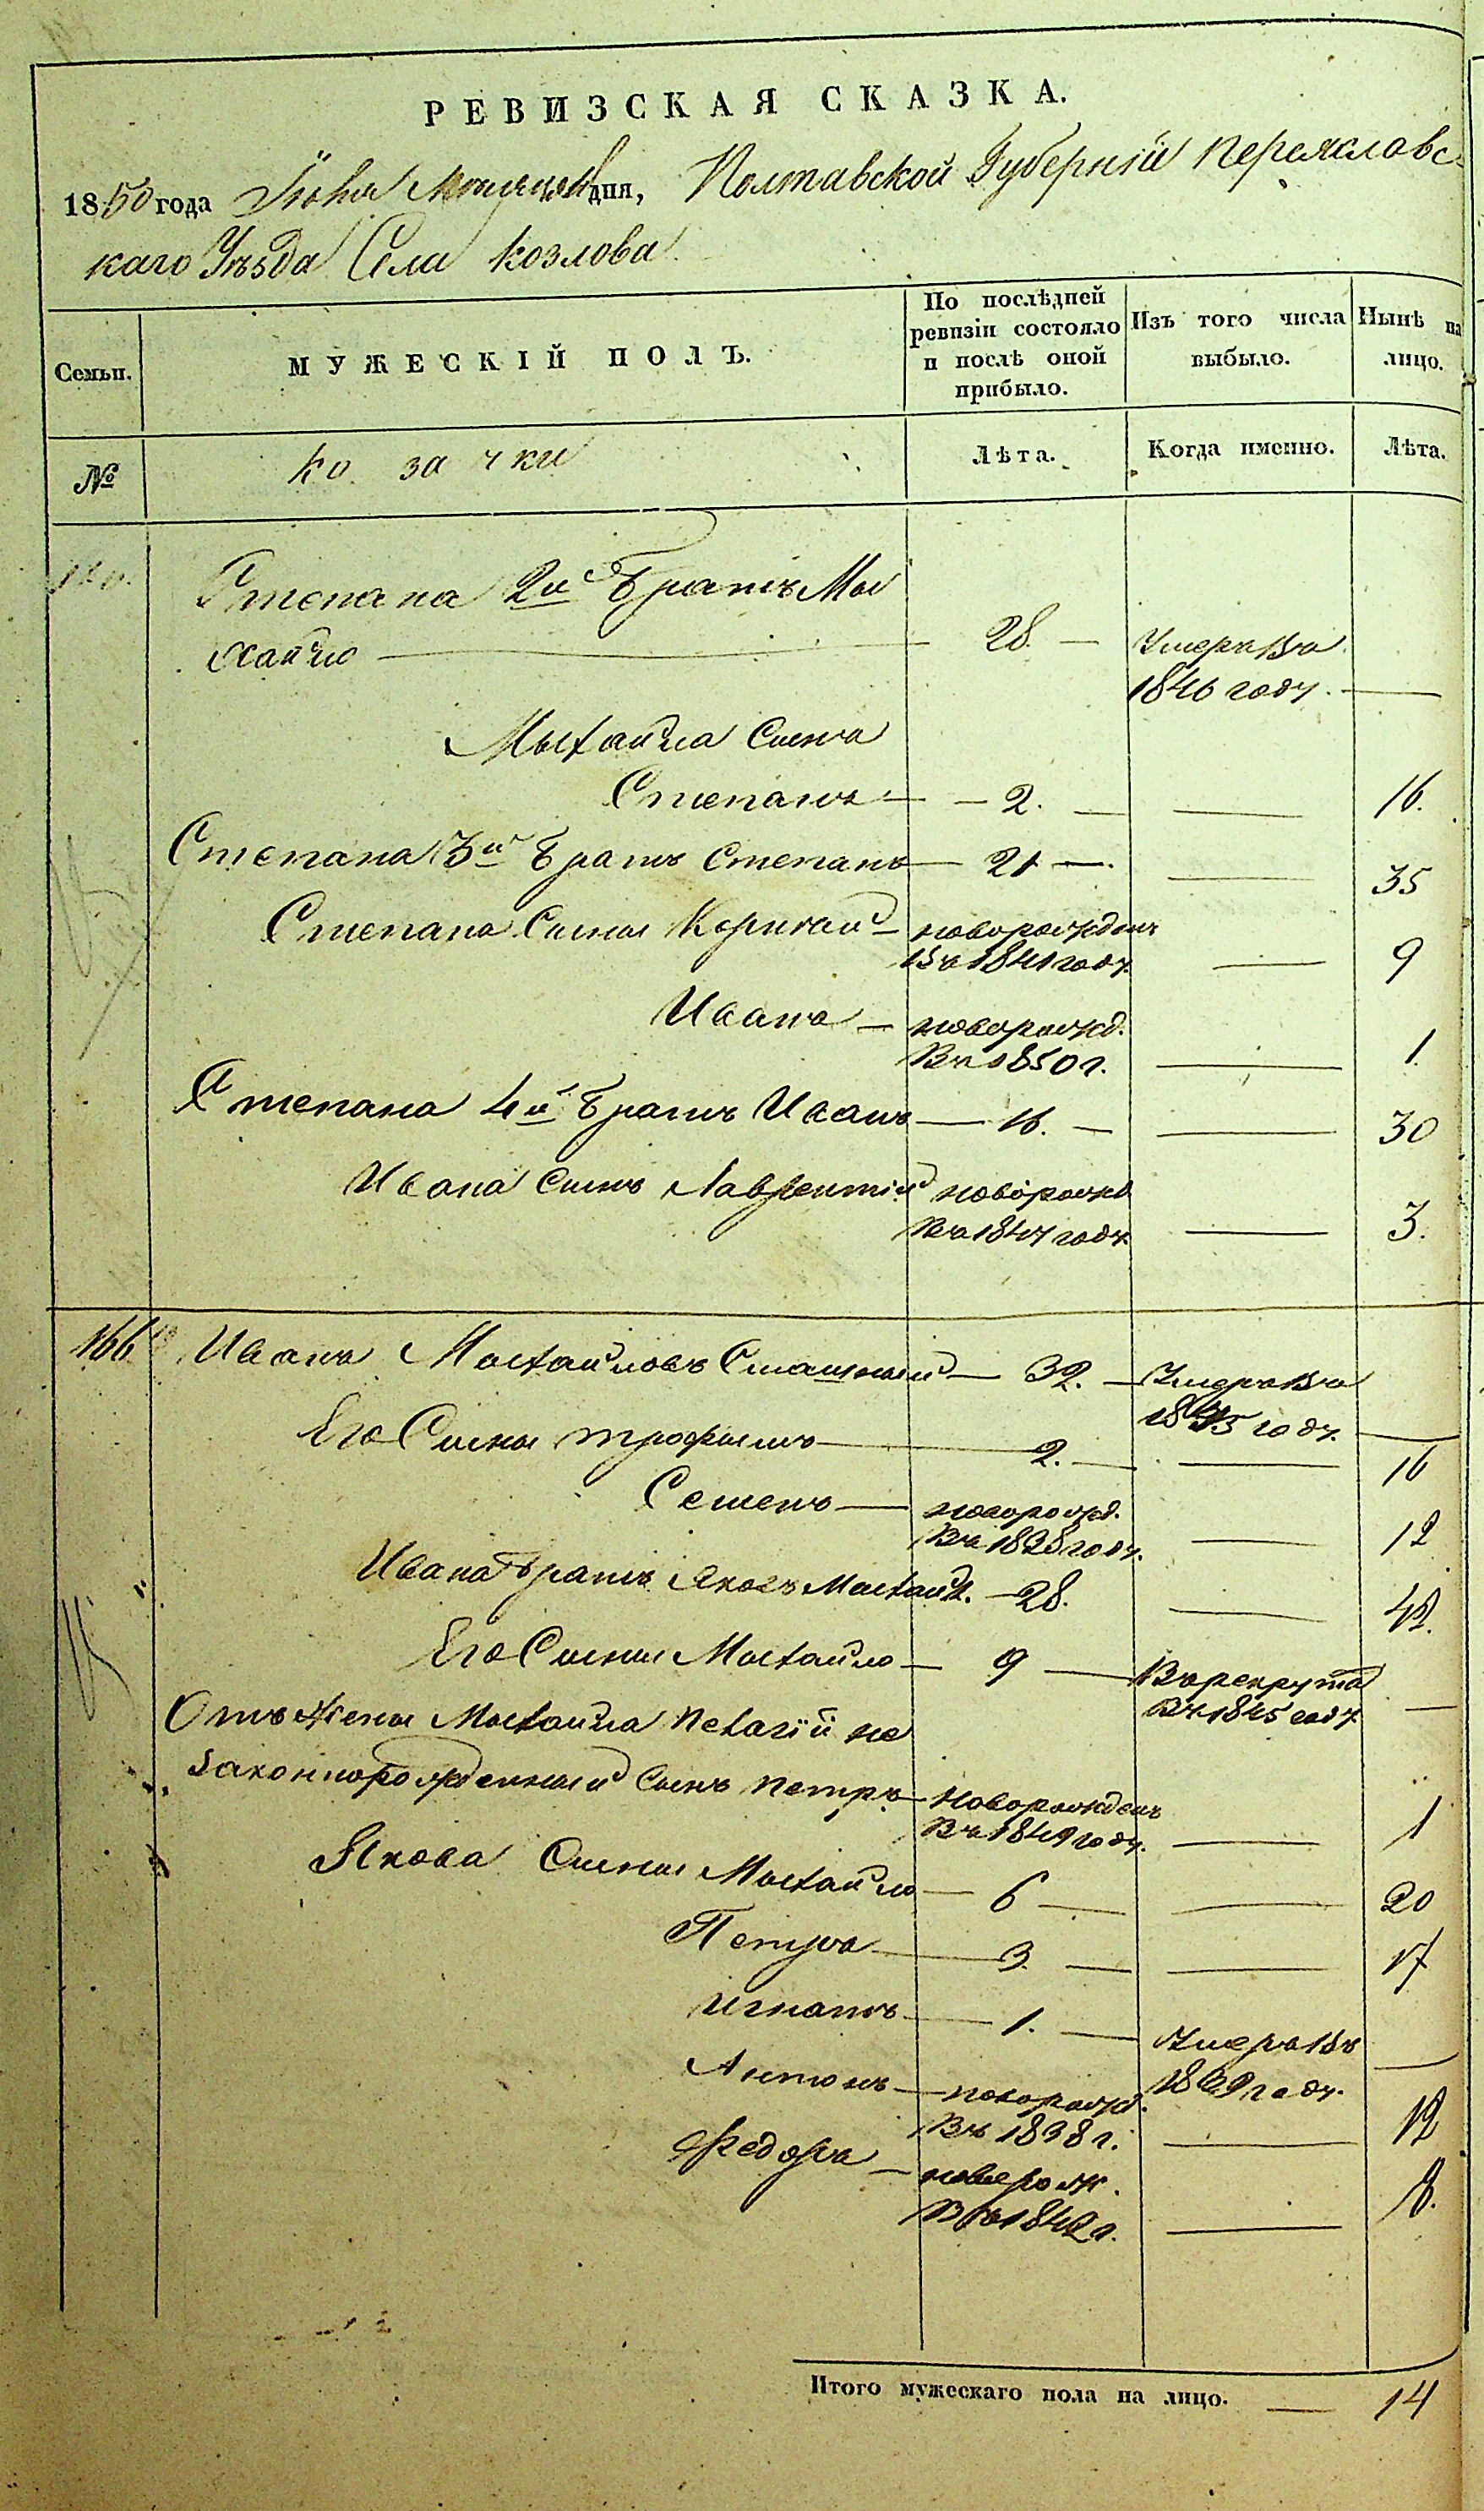 РЕВИЗСКАЯ СКАЗКА.
1850 года Іюня дня, Полтавской Губерніи Переяславс-
каго Уѣзда Села Козлова
Семьи.
МУЖЕСКІЙ ПОЛЪ.
По послѣдней
ревизіи состояло
и послѣ оной
прибыло.
Изъ того числа
выбыло.
Нынѣ на
лицо.
№
козачки
Лѣта.
Когда именно.
Лѣта.
Степана 2й Братъ Мы
хайло 28. Умеръ въ
1846 году.
Мыхайла Сынъ
Степанъ 2. 16.
Степана 3й Братъ Степанъ 21 35
Степана Сыны новорожденъ
въ 1841 году. 9
Иванъ новорожд.
въ 1850 г. 1.
Степана 4й Братъ Иванъ 16. 30
Ивана Сынъ Лаврентій новорожд
въ 1847 году. 3.
166 Иванъ Мыхайловъ 32. Умеръ въ
1845 году.
Его Сыны Трофымъ 2. 16
Семенъ новорожд.
въ 1838 году. 12
Ивана Братъ Яковъ Мыхайл. 28. 42.
Его Сыны Мыхайло 9 Въ рекрута
въ 1845 году
Отъ жены Мыхайла Пелагіи не
законнорожденный Сынъ Петръ новорожденъ
въ 1849 году. 1
Якова Сыны Мыхайло 6 20
Петръ 3. 17
Игнатъ 1. Умеръ въ
1839 году.
Антонъ новорожд.
въ 1838 г. 12
Федоръ новорож.
въ 1842 г. 8.
Итого мужескаго пола на лицо. 14